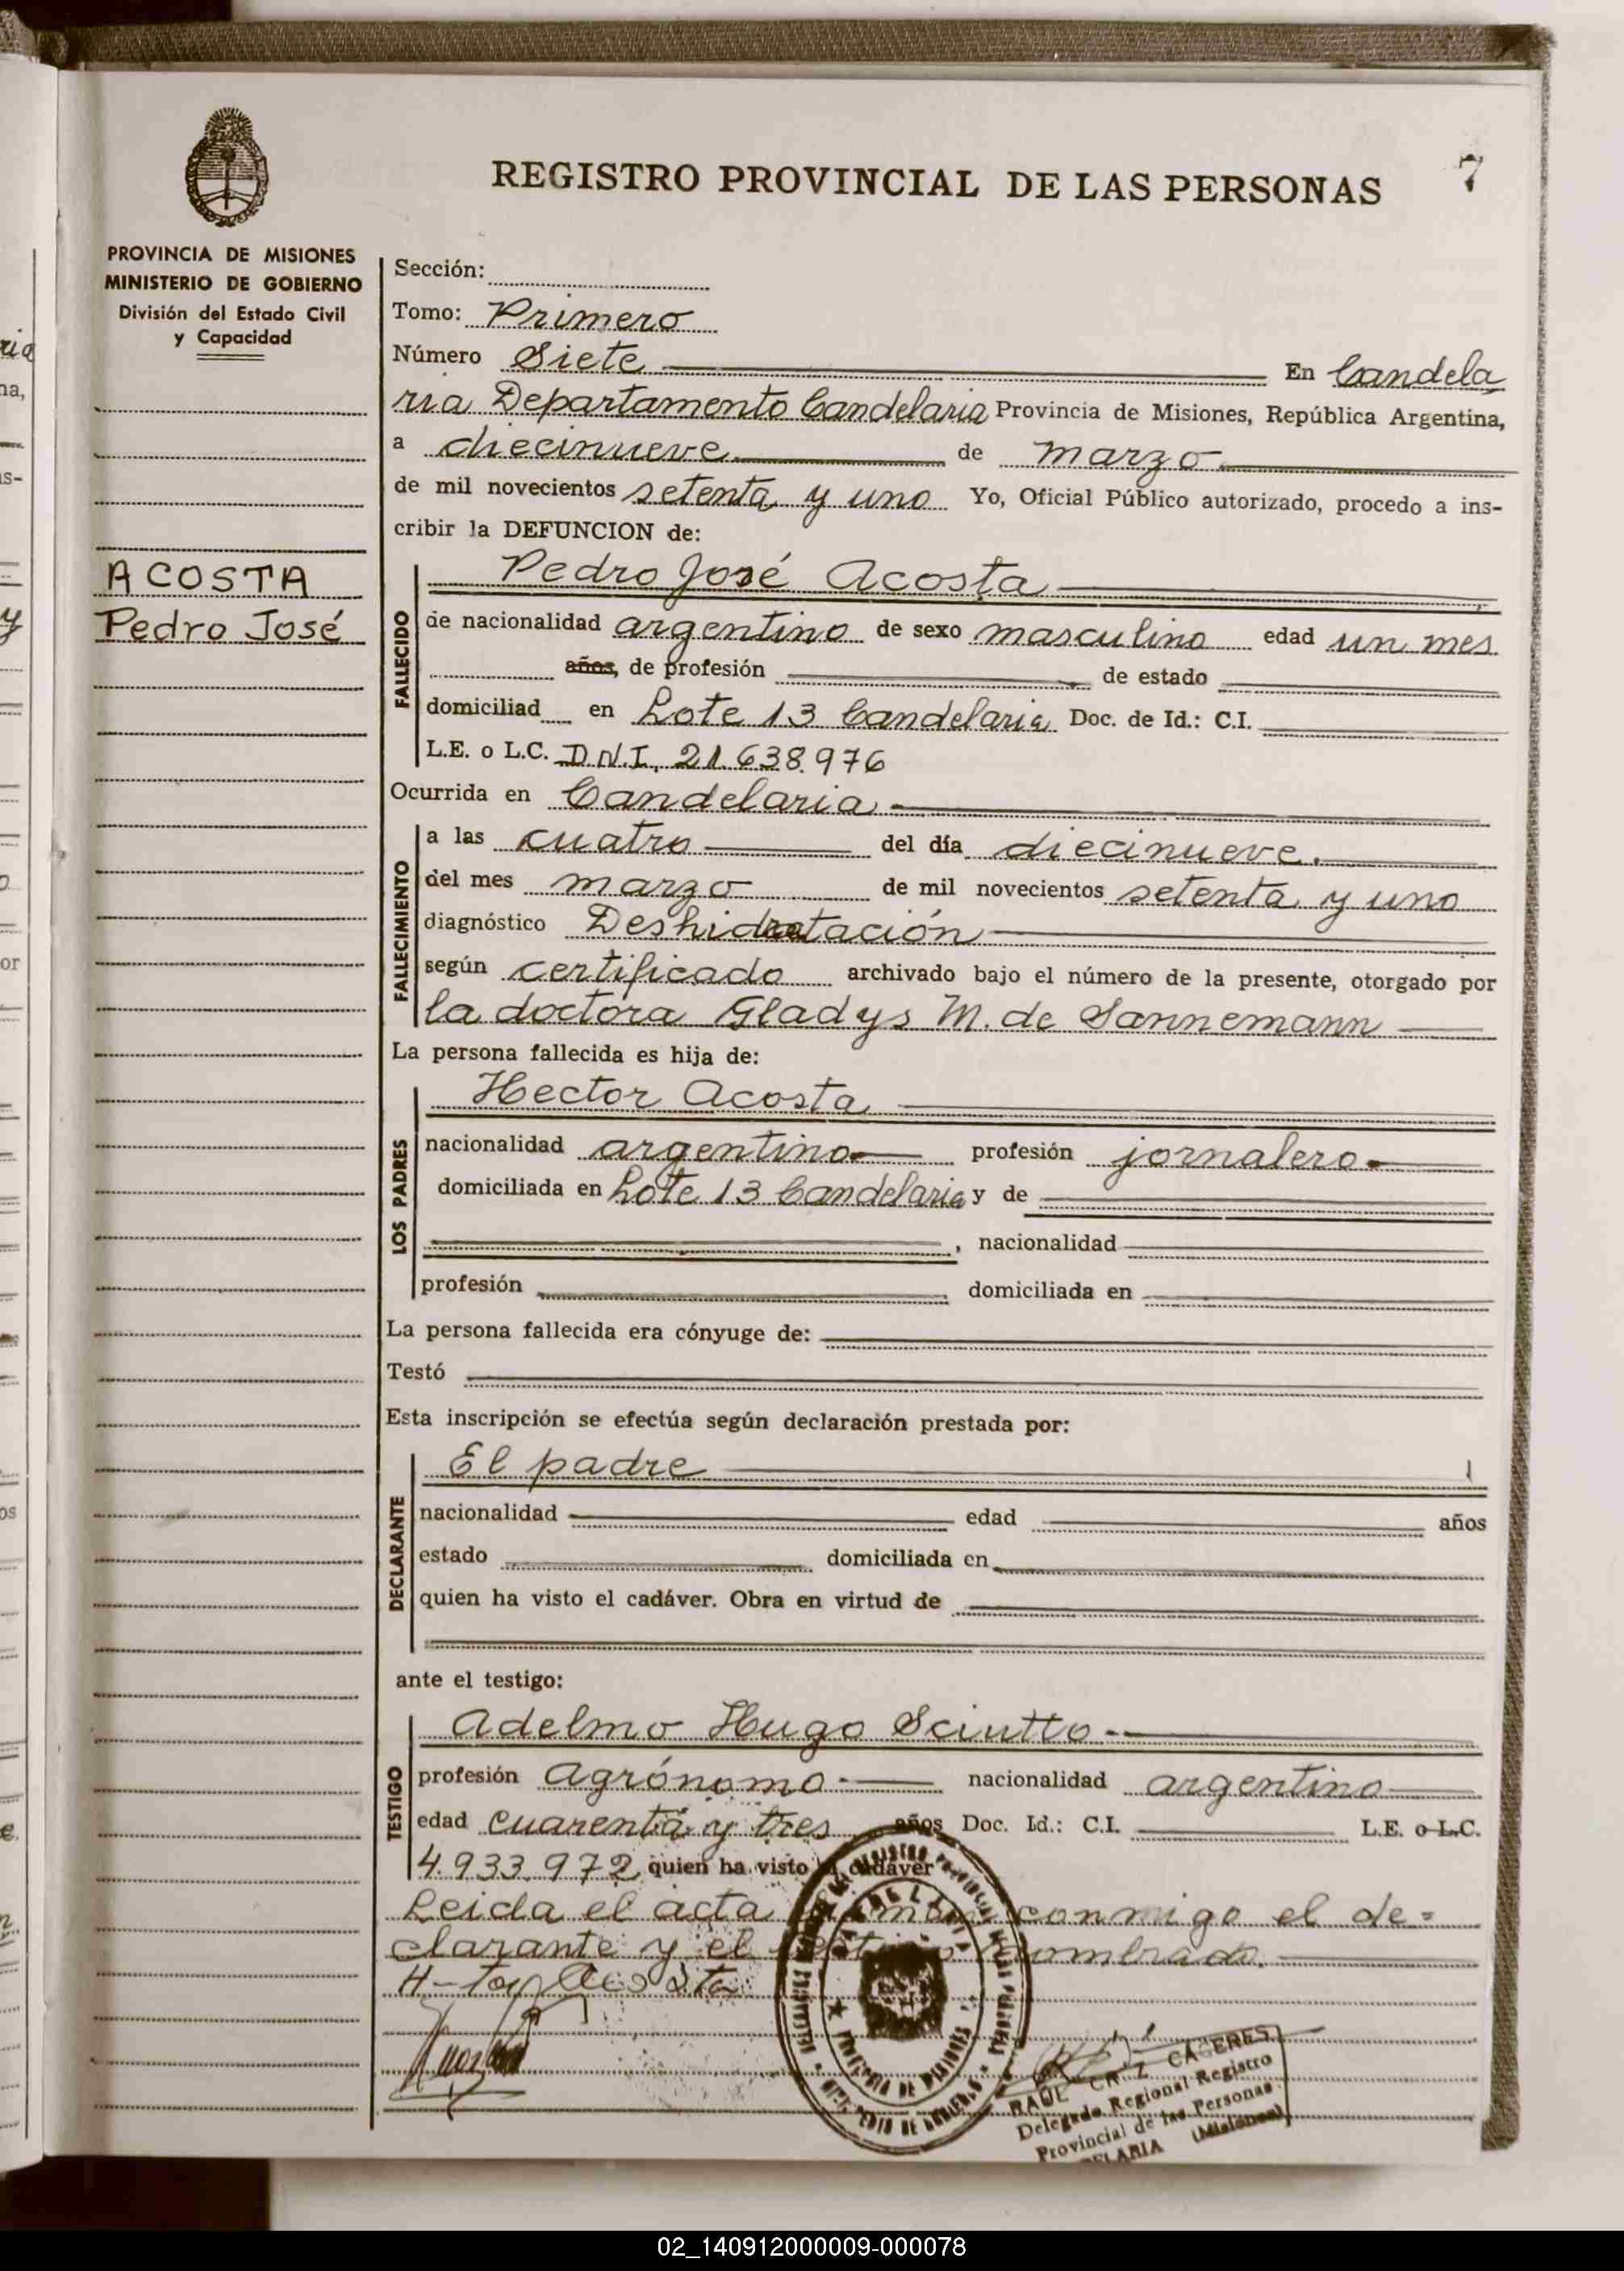 7
REGISTRO PROVINCIAL DE LAS PERSONAS
PROVINCIA DE MISIONES
MINISTERIO DE GOBIERNO
División del Estado Civil
y Capacidad
ACOSTA
Pedro José
Sección:
Tomo: Primero
Número Siete En Candela
ria Departamento Candelaria Provincia de Misiones, República Argentina,
a diecinueve de marzo
de mil novecientos setenta y uno Yo, Oficial Público autorizado, procedo a ins-
cribir la DEFUNCION de:
FALLECIDO
Pedro José Acosta
de nacionalidad argentino de sexo masculino edad un mes
años, de profesión de estado
domiciliad en Lote 13 Candelaria Doc. de Id.: C.I.
L.E. o L.C. D.N.I. 21.638.976
Ocurrida en Candelaria
FALLECIMIENTO
a las cuatro del día diecinueve.
del mes marzo de mil novecientos setenta y uno
diagnóstico Deshidratación
según certificado archivado bajo el número de la presente, otorgado por
la doctora Gladys M. de Sannemann
La persona fallecida es hija de:
LOS PADRES
Hector Acosta
nacionalidad argentino profesión jornalero
domiciliada en Lote 13 Candelaria y de
, nacionalidad
profesión domiciliada en
La persona fallecida era cónyuge de:
Testó
Esta inscripción se efectúa según declaración prestada por:
DECLARANTE
El padre
nacionalidad edad años
estado domiciliada en
quien ha visto el cadáver. Obra en virtud de
ante el testigo:
TESTIGO
Adelmo Hugo Sciutto
profesión Agrónomo nacionalidad argentino
edad cuarenta y tres años Doc. Id.: C.I. L.E. o L.C.
4.933.972 quien ha visto cadáver
Leida el acta conmigo el de=
clarante y el nombrado.
Acosta
RAUL CRUZ CACERES
Delegado Regional Registro
Provincial de las Personas
(Misiones)
02_140912000009-000078